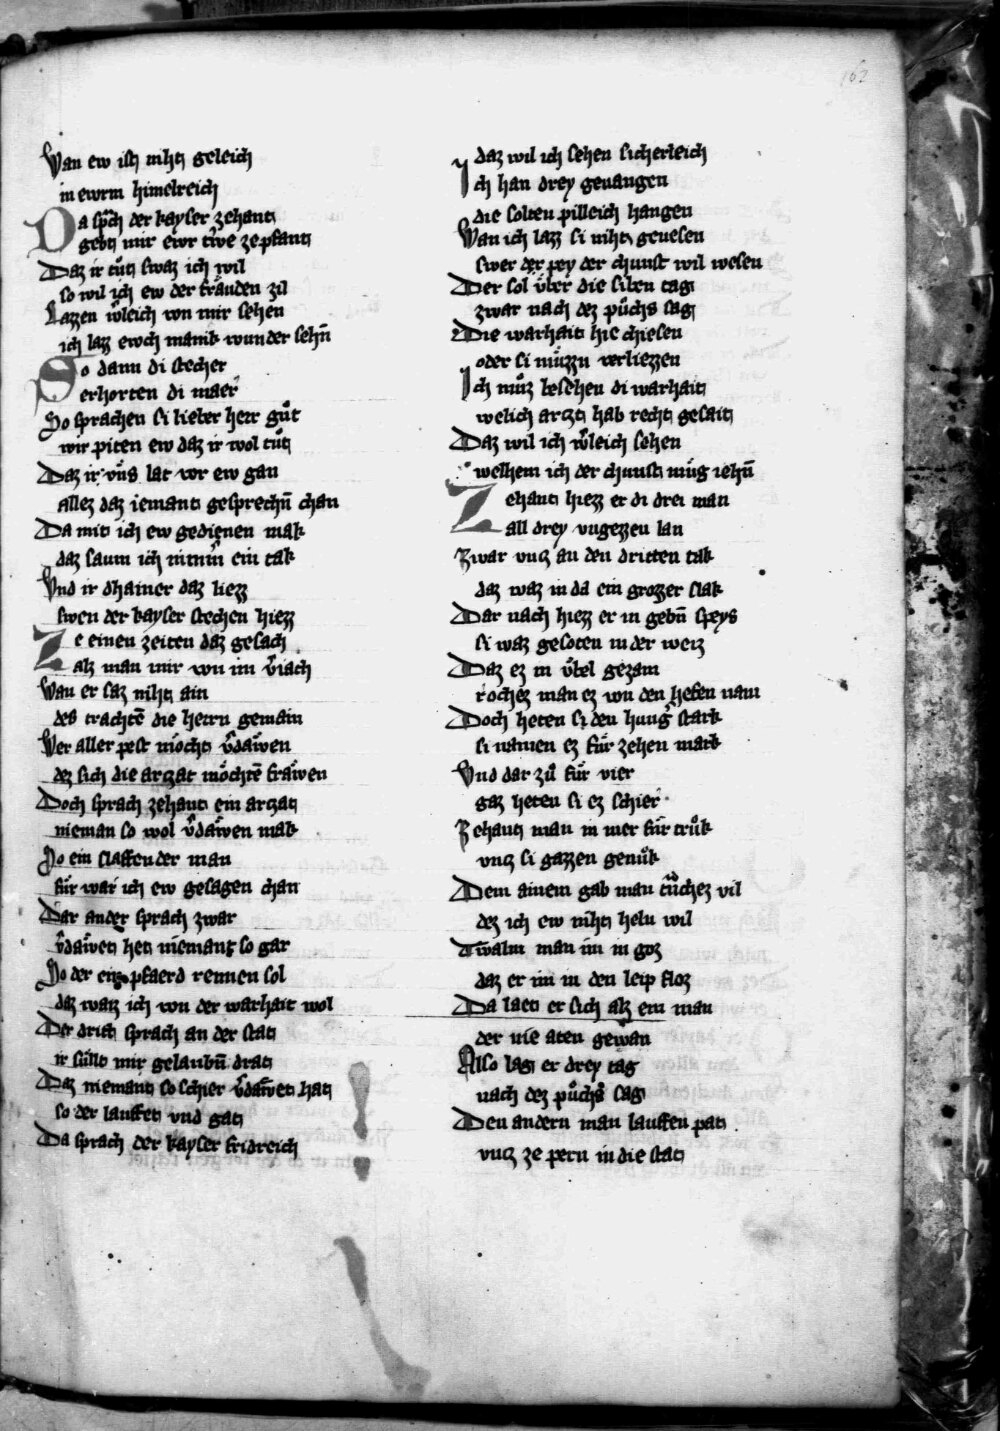 Wan ew ist niht geleich
in ewrm himelreich
Da sp̄ch der kayser zehant
gebt mir ewr tr̄we ze pfant
Daz ir tůt swaz ich wil
so wil ich ew der fräuden zil
Lazzen w̄leich von mir sehen
ich lazz ewch manik wunder sehn̄
So dann di stecher
erhorten di maer
Do sprachen si lieber herr gůt
wir piten ew daz ir wol tůt
Daz ir vns lat vor ew gan
allez daz iemant gesprechn̄ chan
Da mit ich ew gedienen mak
daz saum ich nimm̄ ein tak
Vnd ir dhainer daz liezz
swen der kayser stechen hiezz
Ze einen zeiten daz gesach
alz man mir von im v̄iach
Wan er saz niht ain
des trachtē die herrn gemain
Wer aller pest möcht v̄däwen
dez sich die arzat möchtē fräwen
Doch sprach zehant ein arzat
nieman so wol v̄däwen mak
So ein slaffender man
für war ich ew gesagen chan
Dar ander sprach zwar
v̄däwet het niemant so gar
So der ein pfaerd rennen sol
daz waiz ich von der warhait wol
Der drit sprach an der stat
ir sült mir gelaubn̄ drat
Daz niemant so schier v̄däwet hat
so der lauffet vnd gat
Da sprach der kayser fridreich
daz wil ich sehen sicherleich
Ich han drey geuangen
die solten pilleich hangen
Wan ich lazz si niht genesen
swer der pey der chunst wil wesen
Der sol v̈ber die siben tag
zwar nach dez půchs sag
Die warhait hie chiesen
oder si müzzn verliezzen
Ich můz besehen di warhait
welich arzt hab recht gesait
Daz wil ich w̄leich sehen
welhem ich der chunst müg iehn̄
Zehant hiezz er di drei man
all drey vngezzen lan
Zwar vncz an den dritten tak
daz waz in da ein grozzer slak
Dar nach hiezz er in gebn̄ speys
si waz gesoten in der weiz
Daz ez in v̈bel gezam
rochez man ez von den hefen nam
Doch heten si den hunḡ stark
si namen ez für zehen mark
Vnd dar zů für vier
gaz heten si ez schier
Zehant man in mer für trůk
vncz si gazzen genůk
Dem ainem gab man tr̄nchez vil
dez ich ew niht heln wil
Twalm man im in goz
daz er im in den leip floz
Da laet er sich alz ein man
der nie aten gewan
Also lag er drey tag
nach dez půchs sag
Den andern man lauffen pat
vncz ze pern in die stat